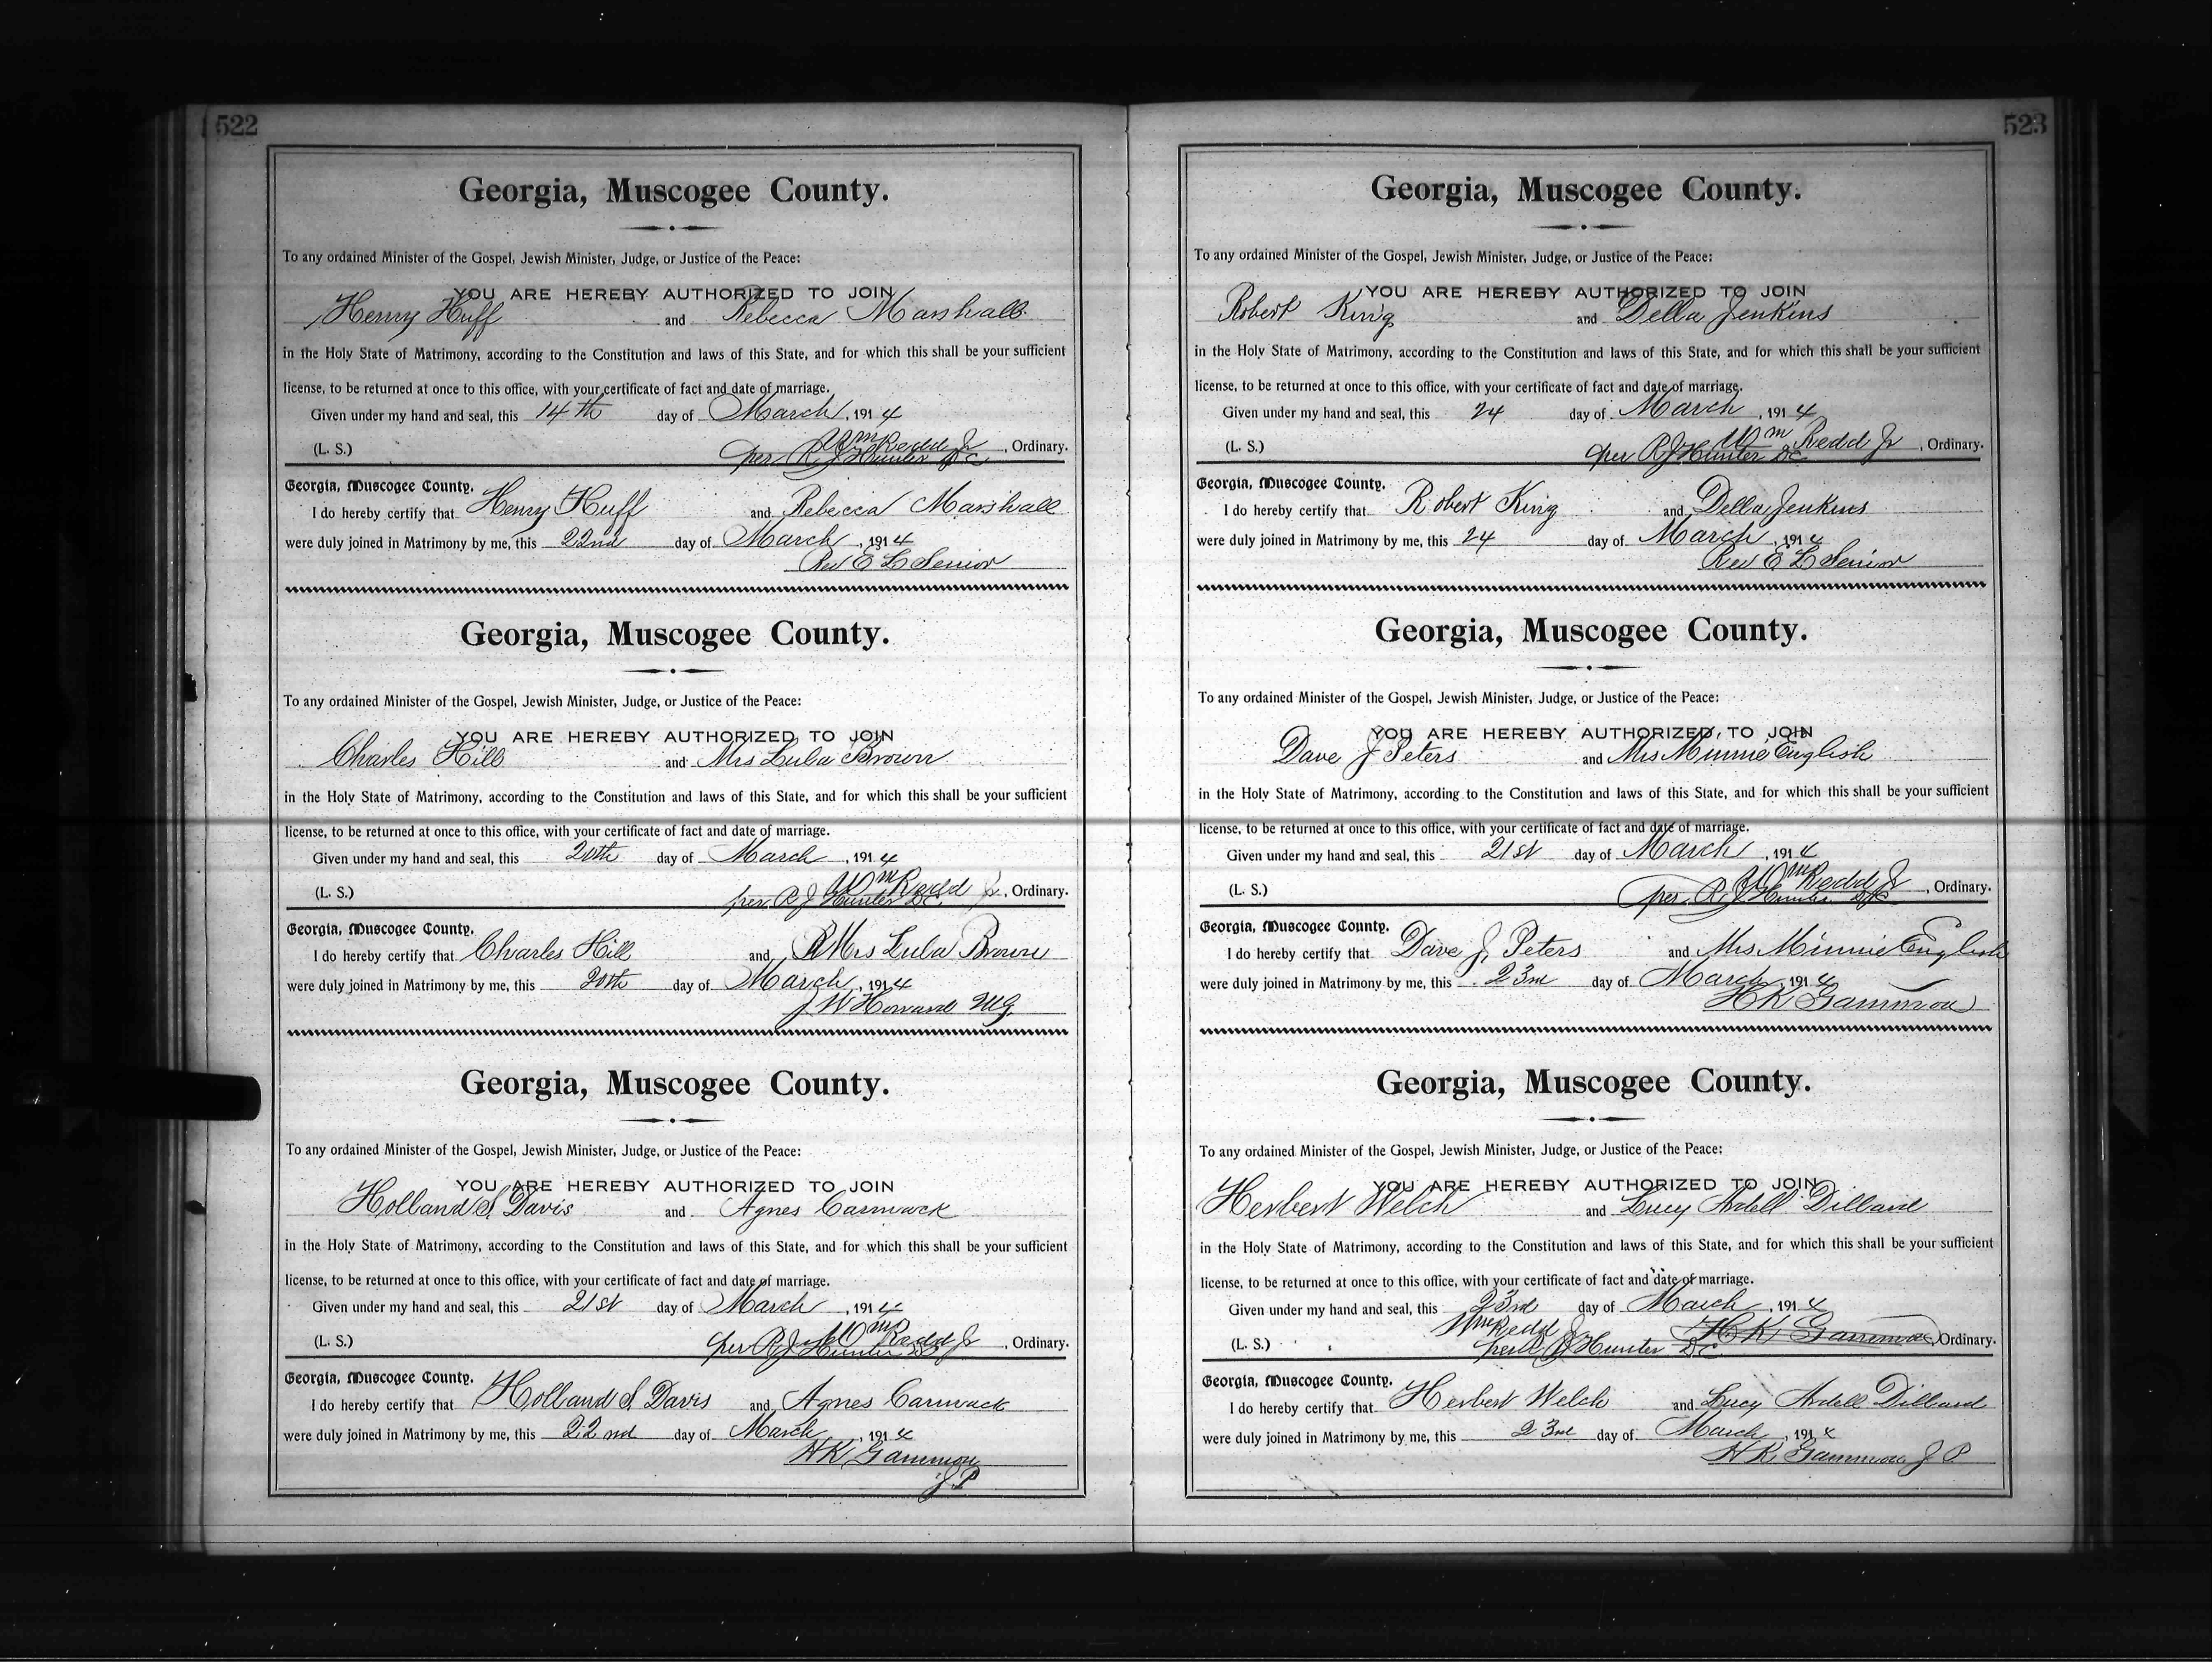 522
Georgia, Muscogee County.
To any ordained Minister of the Gospel, Jewish Minister, Judge, or Justice of the Peace:
YOU ARE HEREBY AUTHORIZED TO JOIN
Henry Huff and Rebecca Marshall
in the Holy State of Matrimony, according to the Constitution and laws of this State, and for which this shall be your sufficient
license, to be returned at once to this office, with your certificate of fact and date of marriage.
Given under my hand and seal, this 14th day of March, 1914
Wm Redd Jr
(L. S.) per R J Hunter DC, Ordinary.
Georgia, Muscogee County.
I do hereby certify that Henry Huff and Rebecca Marshall
were duly joined in Matrimony by me, this 22nd day of March, 1914
Rev E L Senior
Georgia, Muscogee County.
To any ordained Minister of the Gospel, Jewish Minister, Judge, or Justice of the Peace:
YOU ARE HEREBY AUTHORIZED TO JOIN
Charles Hill and Mrs Lula Brown
in the Holy State of Matrimony, according to the Constitution and laws of this State, and for which this shall be your sufficient
license, to be returned at once to this office, with your certificate of fact and date of marriage.
Given under my hand and seal, this 20th day of March, 1914
Wm Redd Jr
(L. S.) per R J Hunter DC, Ordinary.
Georgia, Muscogee County.
I do hereby certify that Charles Hill and Mrs Lula Brown
were duly joined in Matrimony by me, this 20th day of March, 1914
J W Howard MG
Georgia, Muscogee County.
To any ordained Minister of the Gospel, Jewish Minister, Judge, or Justice of the Peace:
YOU ARE HEREBY AUTHORIZED TO JOIN
Holland S Davis and Agnes Carmack
in the Holy State of Matrimony, according to the Constitution and laws of this State, and for which this shall be your sufficient
license, to be returned at once to this office, with your certificate of fact and date of marriage.
Given under my hand and seal, this 21st day of March, 1914
Wm Redd Jr
(L. S.) per R J Hunter DC, Ordinary.
Georgia, Muscogee County.
I do hereby certify that Holland S Davis and Agnes Carmack
were duly joined in Matrimony by me, this 22nd day of March, 1914
H K Gammon
J P
523
Georgia, Muscogee County.
To any ordained Minister of the Gospel, Jewish Minister, Judge, or Justice of the Peace:
YOU ARE HEREBY AUTHORIZED TO JOIN
Robert King and Della Jenkins
in the Holy State of Matrimony, according to the Constitution and laws of this State, and for which this shall be your sufficient
license, to be returned at once to this office, with your certificate of fact and date of marriage.
Given under my hand and seal, this 24 day of March, 1914
Wm Redd Jr
(L. S.) per R J Hunter DC, Ordinary.
Georgia, Muscogee County.
I do hereby certify that Robert King and Della Jenkins
were duly joined in Matrimony by me, this 24 day of March, 1914
Rev E L Senior
Georgia, Muscogee County.
To any ordained Minister of the Gospel, Jewish Minister, Judge, or Justice of the Peace:
YOU ARE HEREBY AUTHORIZED TO JOIN
Dave J Peters and Mrs Minnie English
in the Holy State of Matrimony, according to the Constitution and laws of this State, and for which this shall be your sufficient
license, to be returned at once to this office, with your certificate of fact and date of marriage.
Given under my hand and seal, this 21st day of March, 1914
Wm Redd Jr
(L. S.) per R J Hunter DC, Ordinary.
Georgia, Muscogee County.
I do hereby certify that Dave J Peters and Mrs Minnie English
were duly joined in Matrimony by me, this 23rd day of March, 1914
H K Gammon
Georgia, Muscogee County.
To any ordained Minister of the Gospel, Jewish Minister, Judge, or Justice of the Peace:
YOU ARE HEREBY AUTHORIZED TO JOIN
Herbert Welch and Lucy Ardell Dillard
in the Holy State of Matrimony, according to the Constitution and laws of this State, and for which this shall be your sufficient
license, to be returned at once to this office, with your certificate of fact and date of marriage.
Given under my hand and seal, this 23rd day of March, 1914
Wm Redd Jr H K Gammon
(L. S.) per R J Hunter DC, Ordinary.
Georgia, Muscogee County.
I do hereby certify that Herbert Welch and Lucy Ardell Dillard
were duly joined in Matrimony by me, this 23rd day of March, 1914
H K Gammon J P